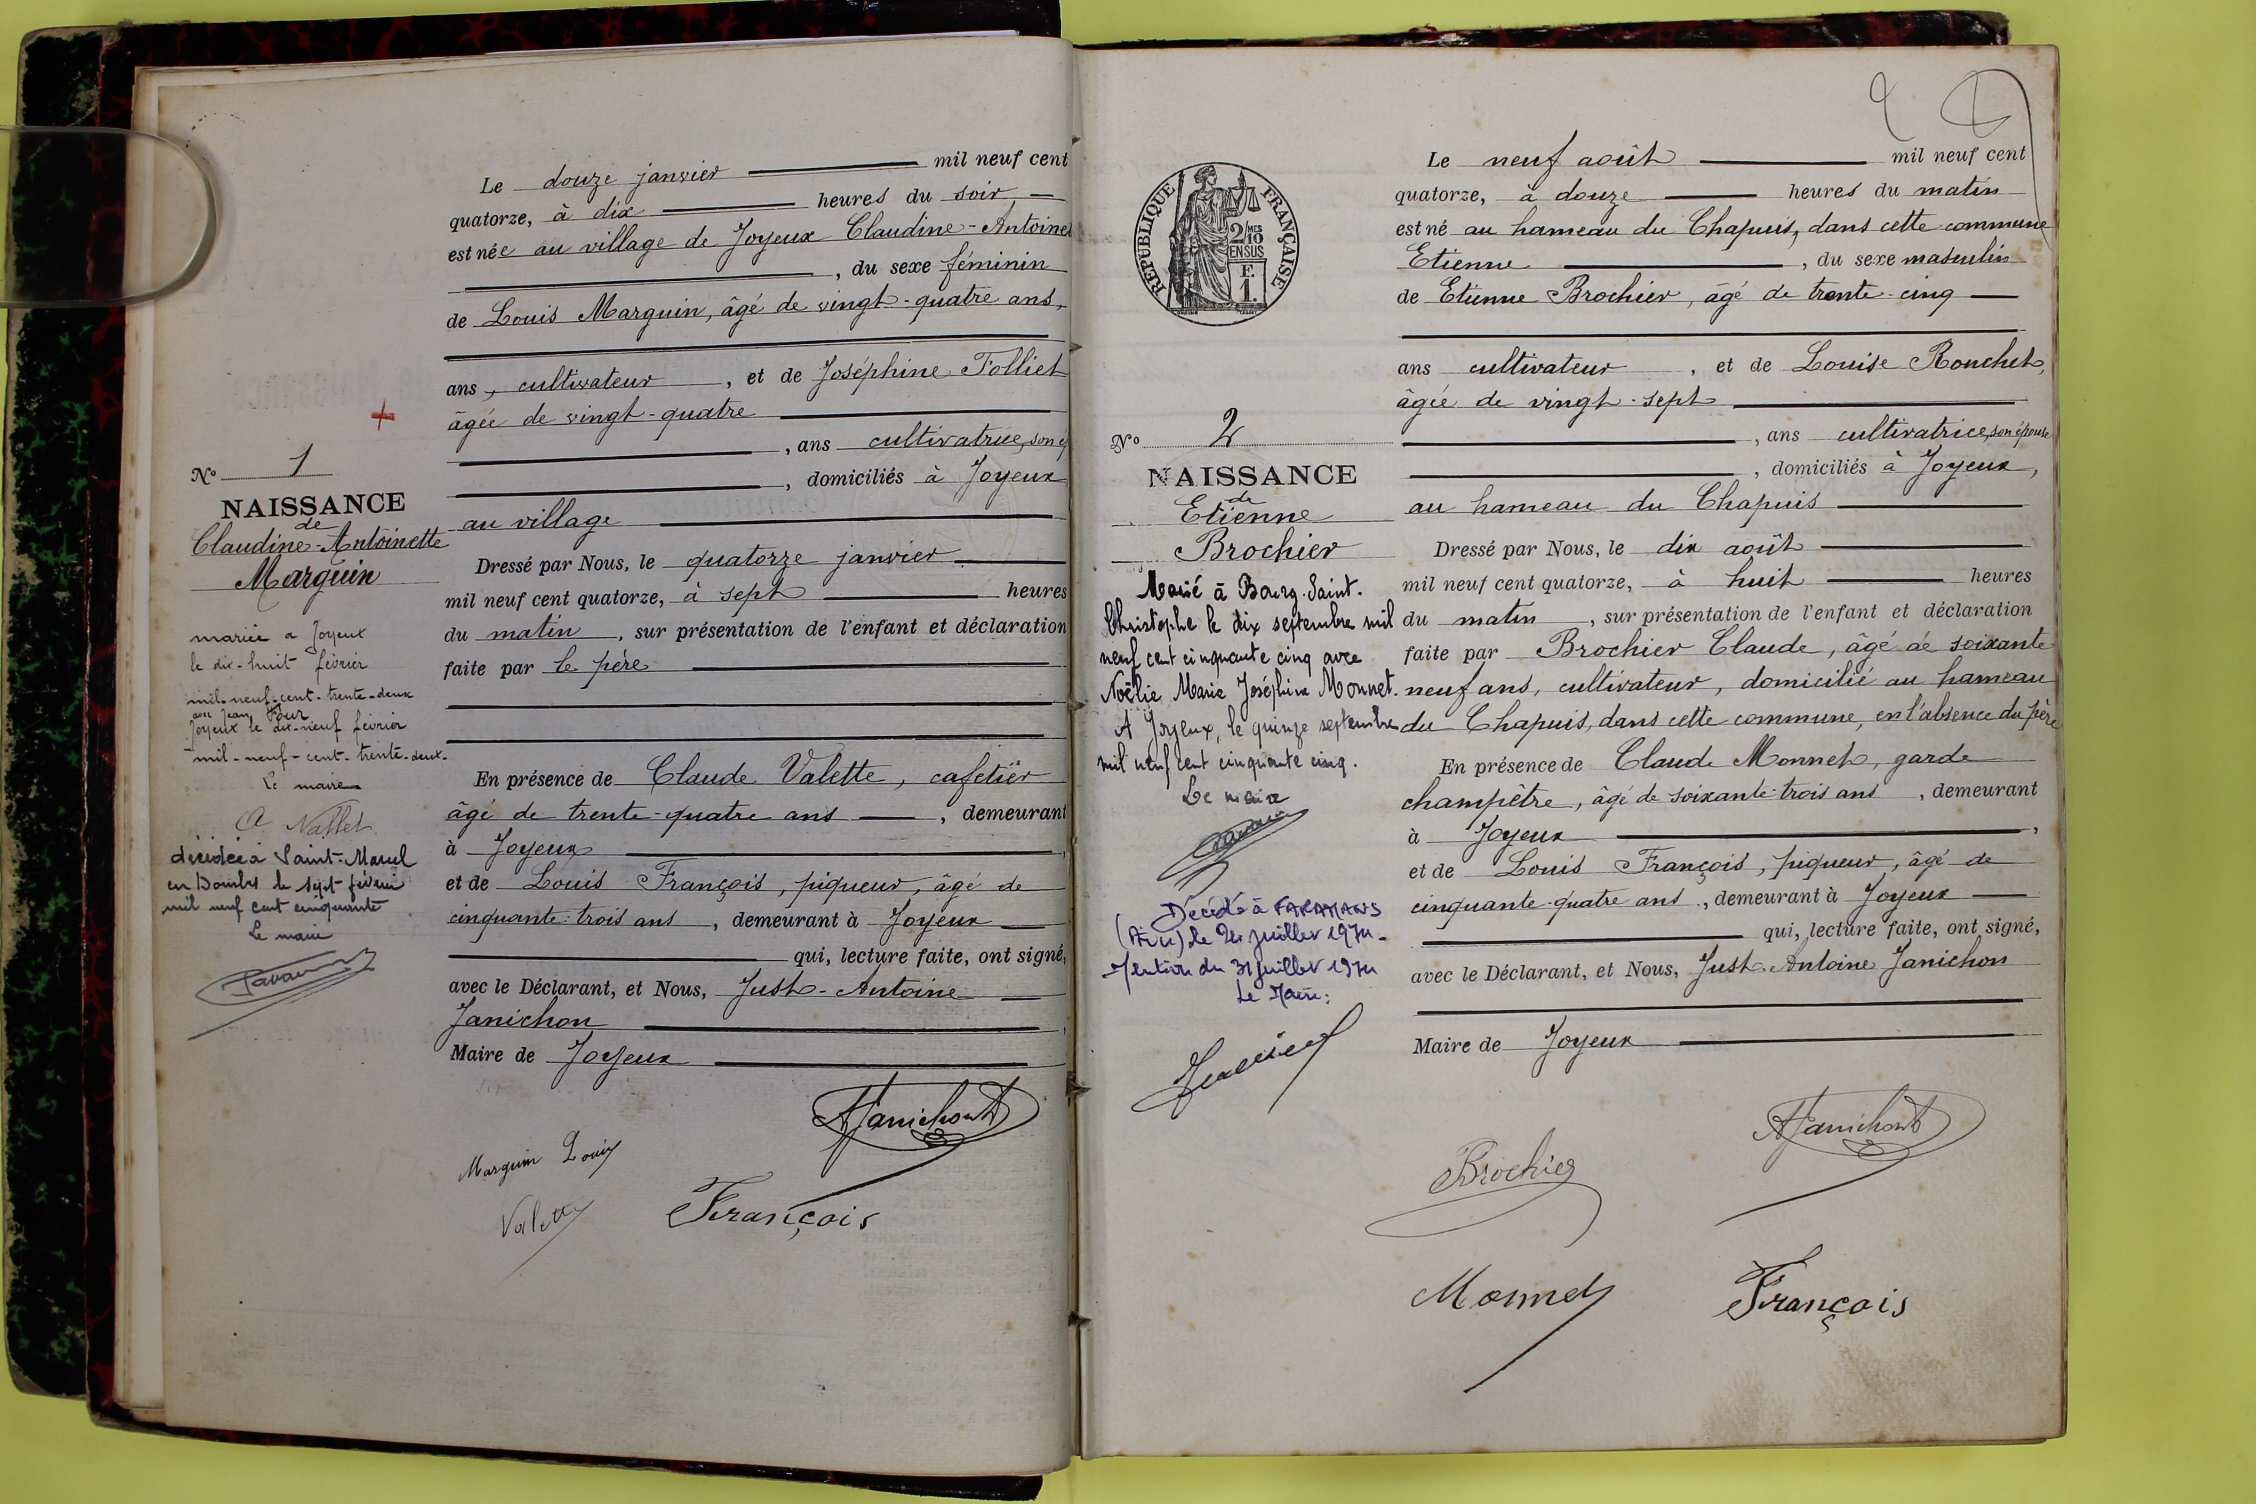 Le douze janvier mil neuf cent
quatorze, à dix heures du soir,
est née au village de Joyeux Claudine-Antoinet
, du sexe féminin
de Louis Marguin, âgé de vingt-quatre ans,
ans, cultivateur, et de Joséphine Folliet
âgée de vingt-quatre
, ans cultivatrice, son ép
, domiciliés à Joyeux
au village
Dressé par Nous, le quatorze janvier
mil neuf cent quatorze, à sept heures
du matin, sur présentation de l'enfant et déclaration
faite par le père
En présence de Claude Valette, cafetier
âgé de trente-quatre ans, demeurant
à Joyeux,
et de Louis François, piqueur, âgé de
cinquante-trois ans, demeurant à Joyeux
qui, lecture faite, ont signé,
avec le Déclarant, et Nous, Just-Antoine
Janichon,
Maire de Joyeux
AJanichon
Marguin Louis
Valette
François
No 1
NAISSANCE
de
Claudine-Antoinette
Marguin
mariée a Joyeux
le dix-huit février
mil-neuf-cent-trente-deux
avec Jean
Joyeux le dix-neuf février
mil-neuf-cent-trente-deux-
Le maire
décédée à Saint-Marcel
en Dombes le sept février
mil neuf cent cinquante
Le maire
2
RÉPUBLIQUE FRANÇAISE
2/10 MES
EN SUS
F.
1.
No 2
NAISSANCE
de
Etienne
Brochier
Marié à Bourg-Saint-
Christophe le dix septembre mil
neuf cent cinquante cinq avec
Noëlie Marie Joséphine Monnet.
A Joyeux, le quinze septembre
mil neuf cent cinquante cinq.
Le maire
Décédé à FARAMANS
(Ain) le juillet 1974-
Mention du 31 juillet 1974
Le Maire:
Le neuf août mil neuf cent
quatorze, à douze heures du matin
est né au hameau du Chapuis, dans cette commune
Etienne, du sexe masculin
de Etienne Brochier, âgé de trente-cinq
ans cultivateur, et de Louise Ronchet,
âgée de vingt-sept
, ans cultivatrice, son épouse
, domiciliés à Joyeux,
au hameau du Chapuis
Dressé par Nous, le dix août
mil neuf cent quatorze, à huit heures
du matin, sur présentation de l'enfant et déclaration
faite par Brochier Claude, âgé de soixante
neuf ans, cultivateur, domicilié au hameau
du Chapuis, dans cette commune, en l'absence du père
En présence de Claude Monnet, garde
champêtre, âgé de soixante-trois ans, demeurant
à Joyeux,
et de Louis François, piqueur, âgé de
cinquante-quatre ans, demeurant à Joyeux
qui, lecture faite, ont signé,
avec le Déclarant, et Nous, Just-Antoine Janichon
Maire de Joyeux
AJanichon
Brochier
Monnet
François